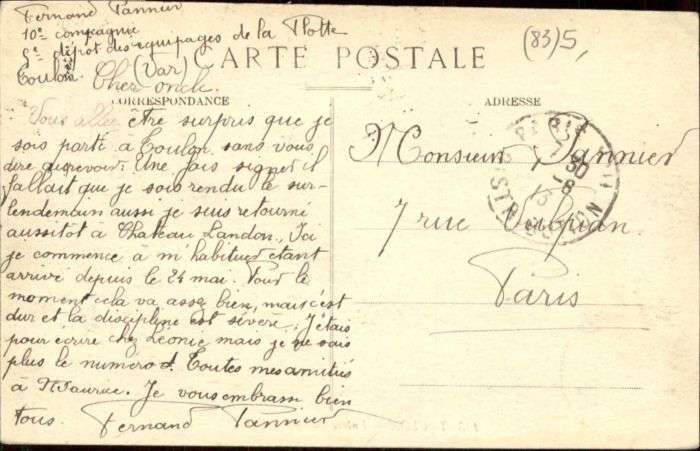 Fernand Pannier
10e compagnie
5e dépot des équipages de la Flotte
Toulon (Var)
(83)5,
CARTE POSTALE
CORRESPONDANCE
ADRESSE
Cher oncle.
Vous allée être surpris que je
sois parti à Toulon sans vous
dire aurevoir. Une fois signer il
fallait que je sois rendu le sur-
lendemain aussi je suis retourné
aussitot à Chateau Landon. Ici
je commence à m'habituer etant
arrivé depuis le 24 mai. Pour le
moment cela va assez bien, mais c'est
dur et la discipline est sévère. J'étais
pour écrire chez Léonie mais je ne sais
plus le numéro. Toutes mes amitiés
à Maurice. Je vous embrasse bien
tous. Fernand Pannier
Monsieur Pannier
7 rue
Paris
PARIS
DISTRIBUTION